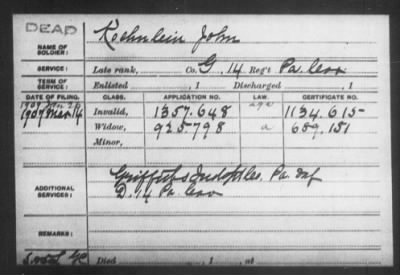 DEAD
NAME OF SOLDIER: Koehnlein John
SERVICE: Late rank, Co. G, 14 Reg't Pa. Cav
TERM OF SERVICE: Enlisted , 1 Discharged , 1
DATE OF FILING. CLASS. APPLICATION NO. LAW. CERTIFICATE NO.
1907 Invalid, 1357.648 age 1134.615
1909 Widow, 925798 a 689.151
Minor,
ADDITIONAL SERVICES: Griffiths Indpt Co. Pa. Inf
D. 14 Pa. Cav
REMARKS:
Died , 1 , at